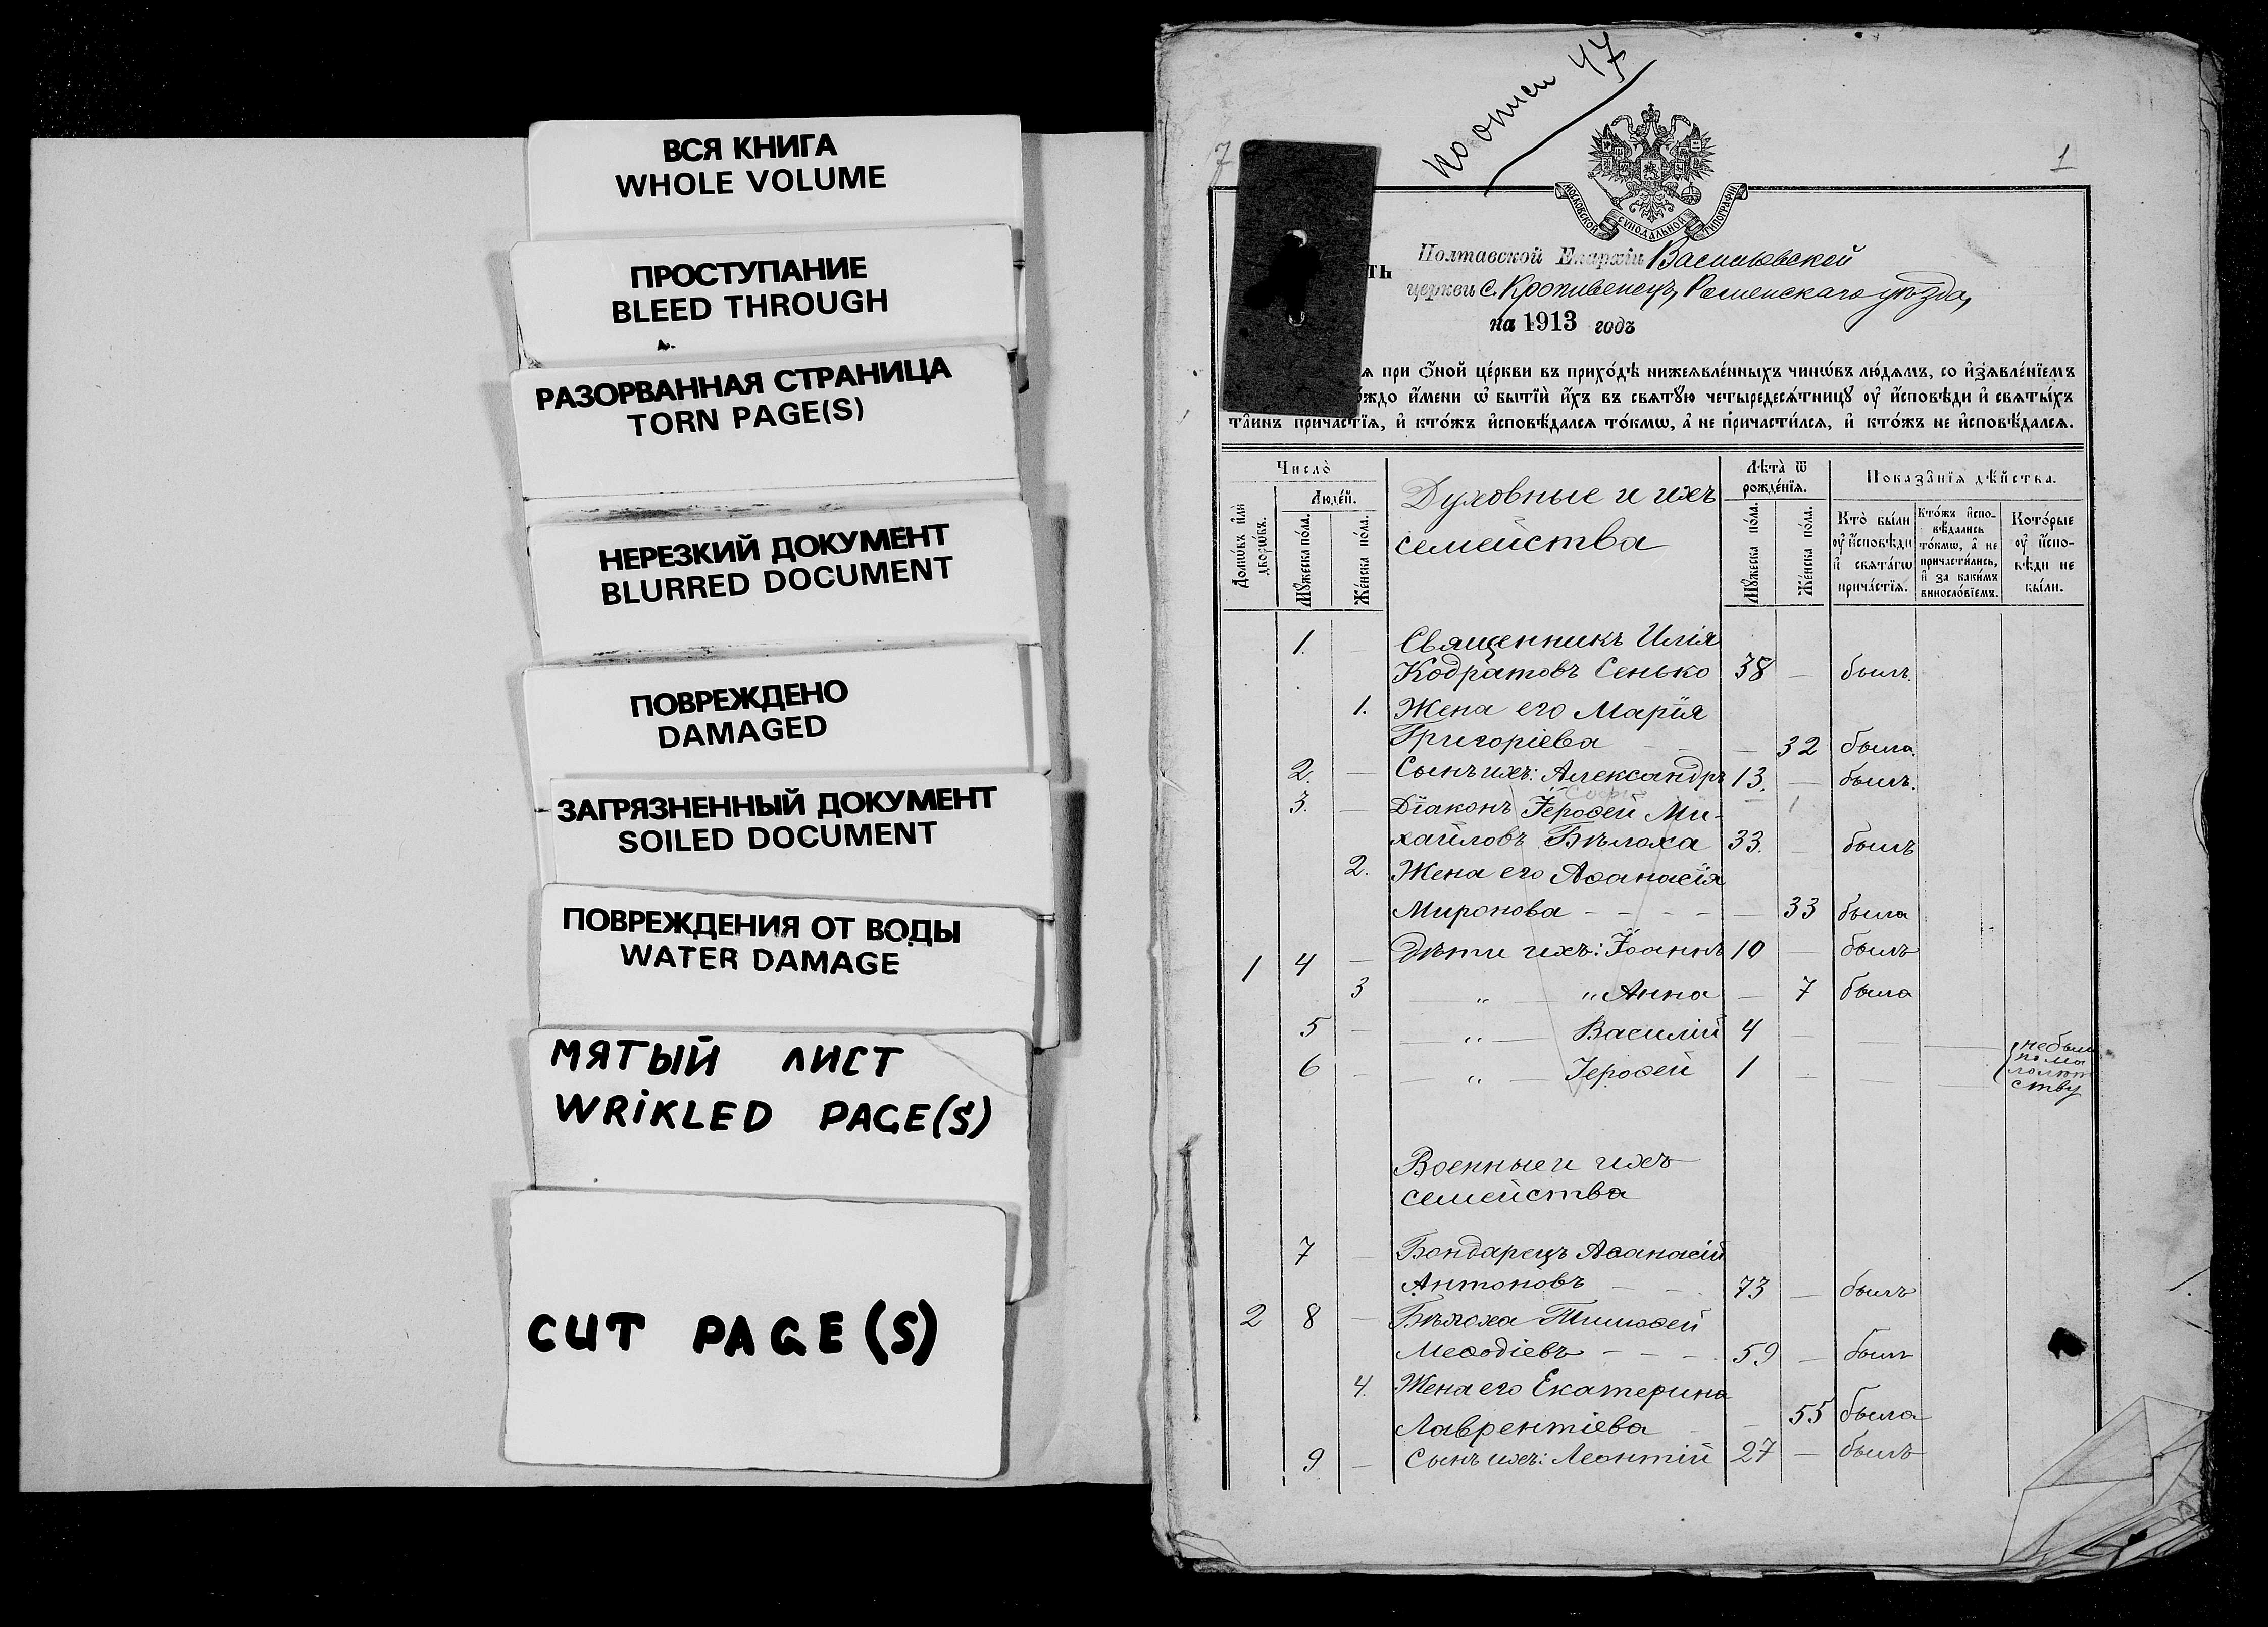 ВСЯ КНИГА
WHOLE VOLUME
ПРОСТУПАНИЕ
BLEED THROUGH
РАЗОРВАННАЯ СТРАНИЦА
TORN PAGE(S)
НЕРЕЗКИЙ ДОКУМЕНТ
BLURRED DOCUMENT
ПОВРЕЖДЕНО
DAMAGED
ЗАГРЯЗНЕННЫЙ ДОКУМЕНТ
SOILED DOCUMENT
ПОВРЕЖДЕНИЯ ОТ ВОДЫ
WATER DAMAGE
МЯТЫЙ ЛИСТ
WRIKLED PAGE(S)
CUT PAGE(S)
по описи 47
7
1
МОСКОВСКОЙ СѴНОДАЛЬНОЙ ТИПОГРАФІИ
ть Полтавской Епархіи Васильевской
церкви с. Кропивенецъ, Роменскаго уѣзда,
на 1913 годъ
я при ѻ҆́ной це́ркви въ прихо́дѣ нижеѧвле́нныхъ чинѡ́въ лю́дѧмъ, со и҆зѧвле́нїемъ
ждо и҆́мени ѡ҆ бытїѝ и҆́хъ въ свѧтꙋ́ю четыредесѧ́тницꙋ ᲂу҆ и҆́сповѣди и҆ свѧты́хъ
та̑инъ прича́стїѧ, и҆ кто́жъ и҆сповѣ́далсѧ то́кмѡ, а҆ не причасти́лсѧ, и҆ кто́жъ не и҆сповѣ́далсѧ.
Число̀
Люде́й.
Домѡ́въ и҆лѝ дворѡ́въ.
Мꙋ́жеска по́ла.
Же́нска по́ла.
Духовные и ихъ
семейства
Лѣ́та ѿ рожде́нїѧ.
Мꙋ́жеска по́ла.
Же́нска по́ла.
Показа̑нїѧ дѣ́йства.
Кто̀ бы́ли ᲂу҆ и҆́сповѣди и҆ свѧта́гѡ прича́стїѧ.
Кто́жъ и҆спо-вѣ́дались то́кмѡ, а҆ не причасти́лись, и҆ за каки́мъ виносло́вїемъ.
Кото́рые ᲂу҆ и҆́спо-вѣди не бы́ли.
1. — Священникъ Илія
Кодратовъ Сенько 38 — былъ.
1. Жена его Марія
Григоріева — 32 была.
2. — Сынъ ихъ: Александръ 13. — былъ.
3. — Діаконъ Іероѳей Ми-
хайловъ Бѣлоха 33. — былъ
2. Жена его Аѳанасія
Миронова — 33 была
1 4 — Дѣти ихъ: Іоаннъ 10 — былъ
3 — „ — „ Анна — 7 была
5 — — „ — Василій 4 — — — не были
6 — — „ — Іероѳей 1 — — — по ма
лолѣт
ству
Военные и ихъ
семейства
7 — Бондарецъ Аѳанасій
Антоновъ 73 — былъ
2 8 — Бѣлоха Тимоѳей
Меѳодіевъ 59 — былъ
4. Жена его Екатерина
Лаврентіева — 55 была
9 — Сынъ ихъ: Леонтій 27 — былъ